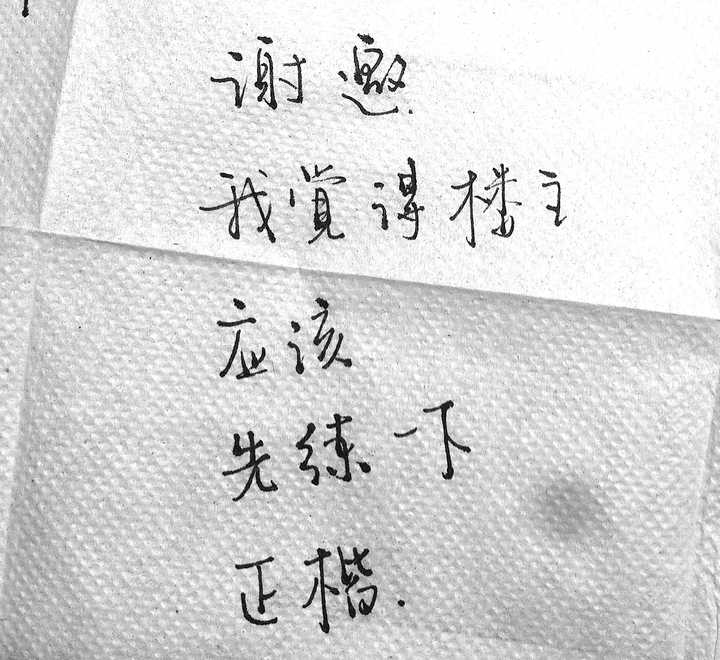 谢邀.
我觉得楼主
应该
先练一下
正楷.